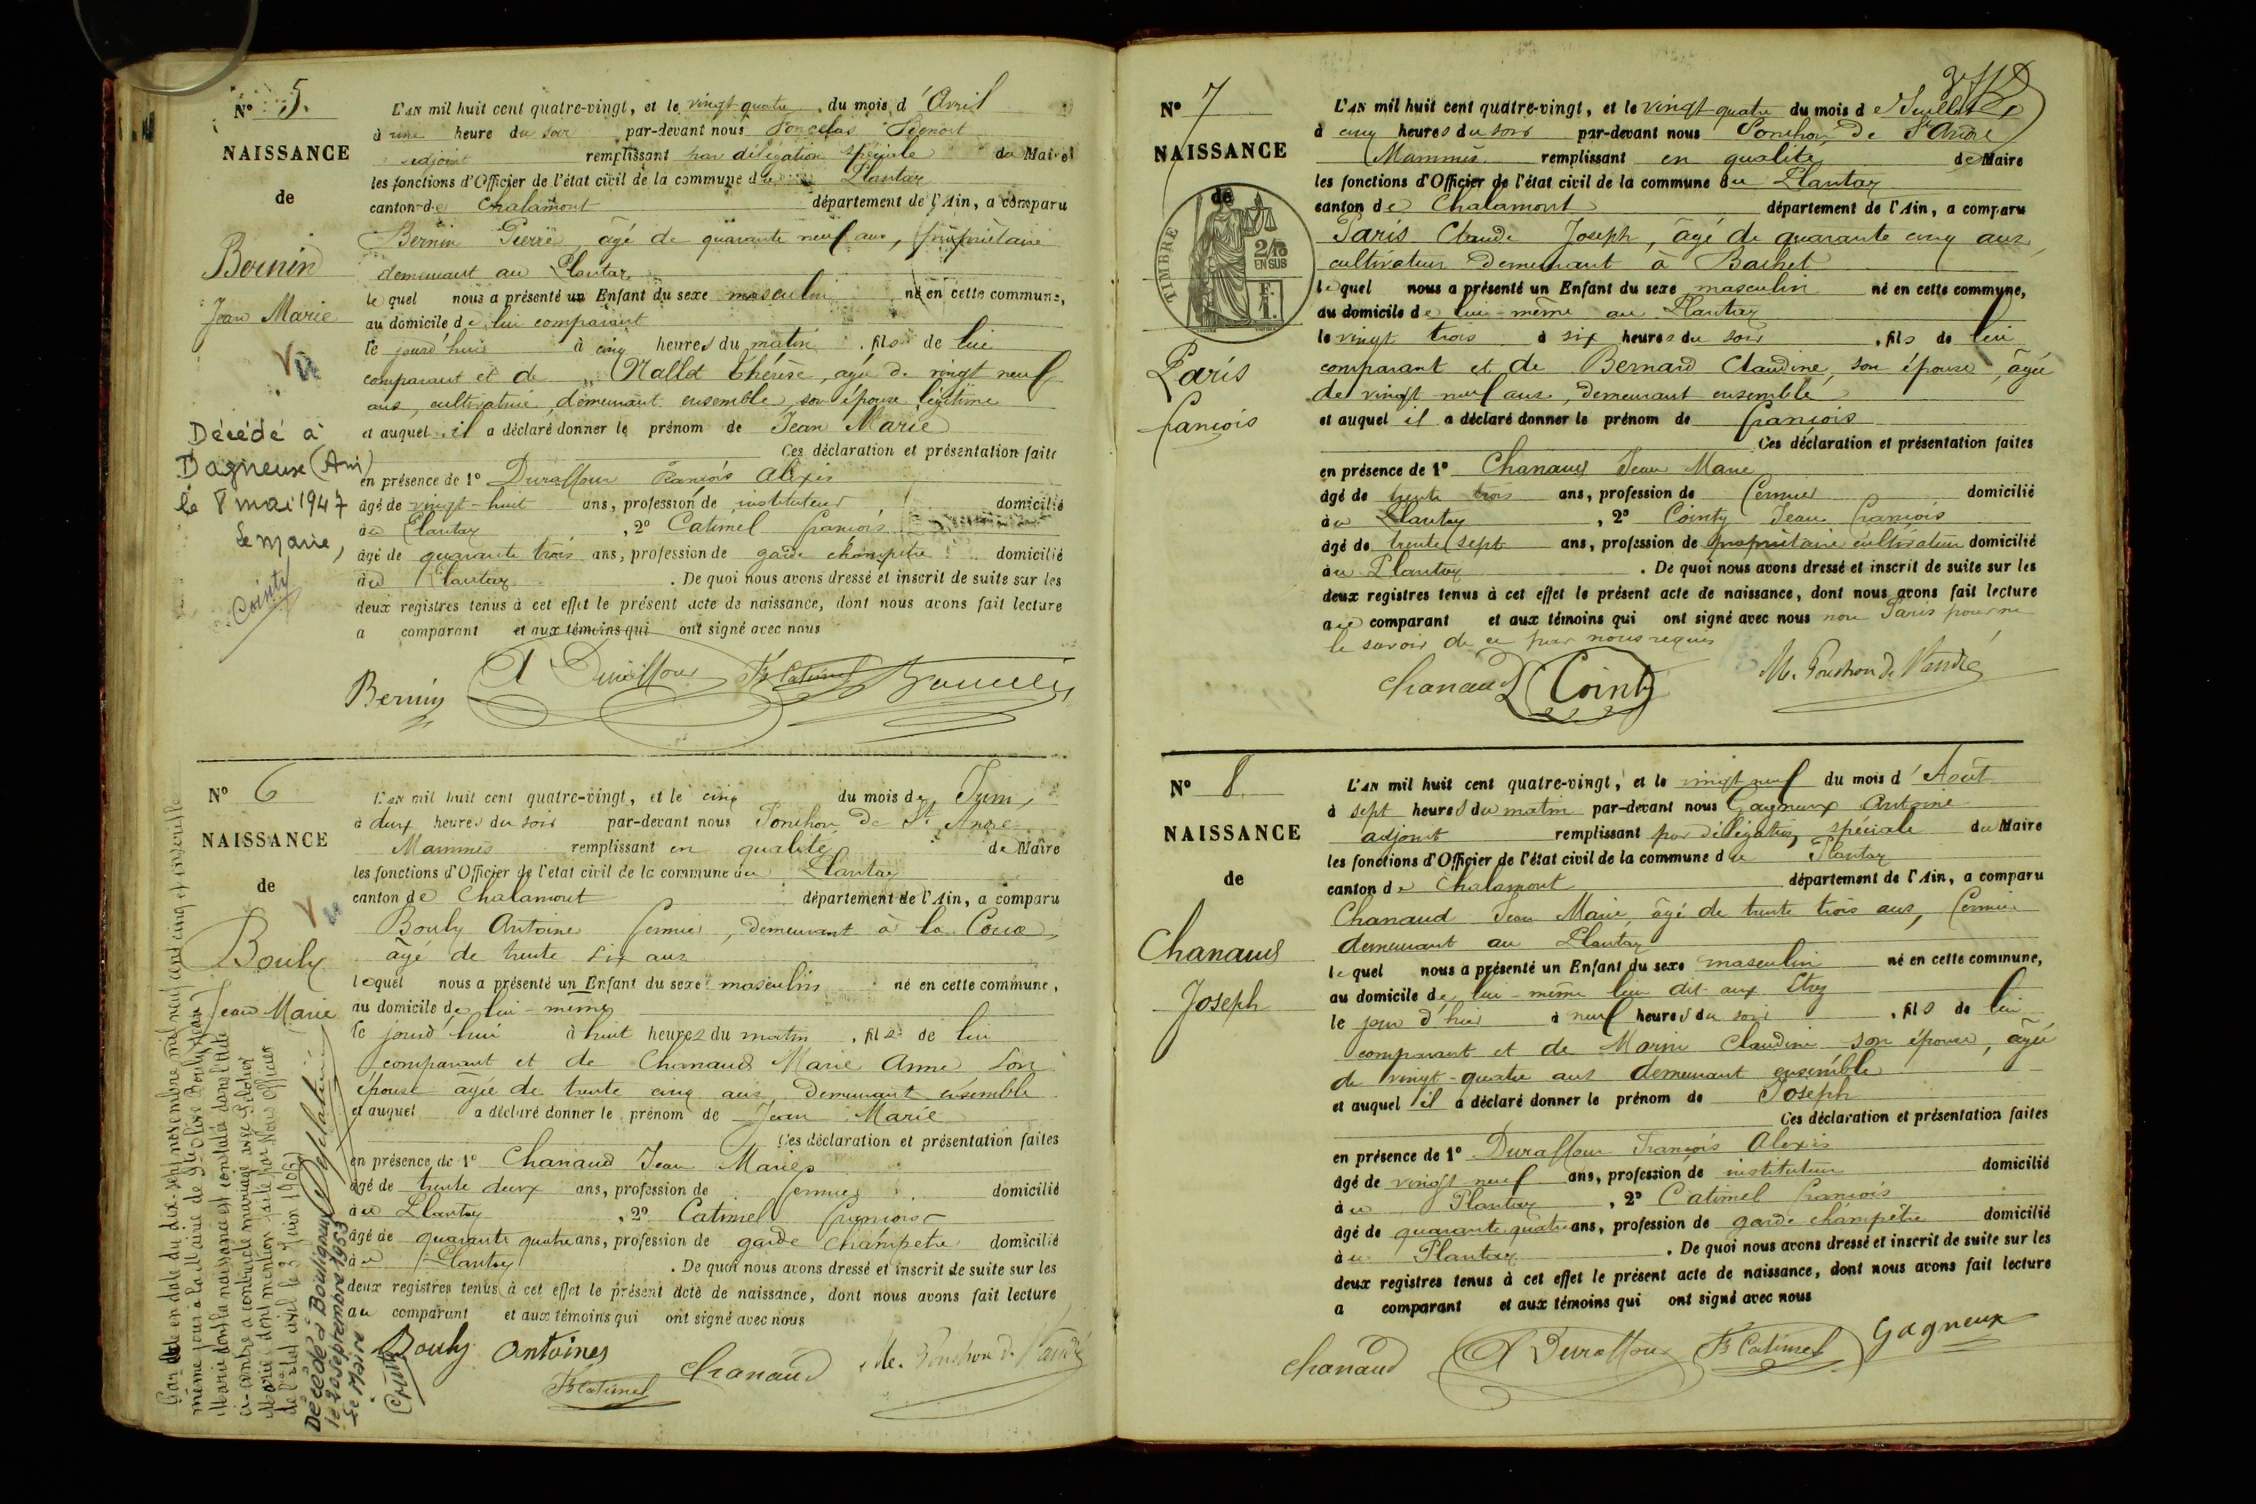 N° 5.
NAISSANCE
de
Bernin
Jean Marie
Vu
Décédé à
Dagneux (Ain)
le 8 mai 1947
Le Maire,
Cointy
L'AN mil huit cent quatre-vingt, et le vingt quatre du mois d'Avril
à une heure du soir par-devant nous Benoit
adjoint remplissant par délégation spéciale du Maire
les fonctions d'Officier de l'état civil de la commune du Plantay
canton de Chalamont département de l'Ain, a comparu
Bernin Pierre, âgé de quarante neuf ans, propriétaire
demeurant au Plantay
le quel nous a présenté un Enfant du sexe masculin né en cette commune,
au domicile de lui comparant
le jourd'hui à cinq heures du matin, fils de lui
comparant et de Mallet Thérèse, agée de vingt neuf
ans, cultivatrice, demeurant ensemble, son épouse légitime
et auquel il a déclaré donner le prénom de Jean Marie
Ces déclaration et présentation faites
en présence de 1° Duraffour François Alexis
âgé de vingt-huit ans, profession de instituteur domicilié
au Plantay, 2° Catimel François
âgé de quarante trois ans, profession de garde champêtre domicilié
au Plantay. De quoi nous avons dressé et inscrit de suite sur les
deux registres tenus à cet effet le présent acte de naissance, dont nous avons fait lecture
a comparant et aux témoins qui ont signé avec nous
Bernin A Duraffour Fs Catimel
N° 6
NAISSANCE
de
Vu
Bouly
Jean Marie
L'AN mil huit cent quatre-vingt, et le cinq du mois de Juin,
à deux heures du soir par-devant nous Ponchon De St André
Mammès remplissant en qualité de Maire
les fonctions d'Officier de l'état civil de la commune du Plantay
canton de Chalamont département de l'Ain, a comparu
Bouly Antoine fermier, demeurant à la
âgé de trente six ans
lequel nous a présenté un Enfant du sexe masculin né en cette commune,
au domicile de lui-même
le jourd'hui à huit heures du matin, fils de lui
comparant et de Chanaud Marie Anne son
épouse âgée de trente cinq ans, demeurant ensemble
et auquel a déclaré donner le prénom de Jean Marie
Ces déclaration et présentation faites
en présence de 1° Chanaud Jean Marie
âgé de trente deux ans, profession de fermier domicilié
au Plantay, 2° Catimel François
âgé de quarante quatre ans, profession de garde champêtre domicilié
au Plantay. De quoi nous avons dressé et inscrit de suite sur les
deux registres tenus à cet effet le présent acte de naissance, dont nous avons fait lecture
au comparant et aux témoins qui ont signé avec nous
Bouly Antoine Fs Catimel Chanaud M. Ponchon de St André
Par acte en date du dix-sept novembre mil neuf cent cinq et inscrit le
même jour à la Mairie de Ste Olive Bouly Jean
Marie dont la naissance est constatée dans l'acte
ci-contre a contracté mariage avec
Marie dont mention faite par Nous Officier
de l'état civil le 3 juin 1906
Décédé à Bouligneux
le 20 septembre 1953
Le Maire
Cointy
N° 7
NAISSANCE
de
TIMBRE
2/10
EN SUS
Paris
François
L'AN mil huit cent quatre-vingt, et le vingt quatre du mois de Juillet
à cinq heures du soir par-devant nous Ponchon De St André
Mammès remplissant en qualité de Maire
les fonctions d'Officier de l'état civil de la commune du Plantay
canton de Chalamont département de l'Ain, a comparu
Paris Claude Joseph, âgé de quarante cinq ans,
cultivateur demeurant à Bachet
le quel nous a présenté un Enfant du sexe masculin né en cette commune,
au domicile de lui-même au Plantay
le vingt trois à six heures du soir, fils de lui
comparant et de Bernard Claudine, son épouse, âgée
de vingt neuf ans, demeurant ensemble
et auquel il a déclaré donner le prénom de françois
Ces déclaration et présentation faites
en présence de 1° Chanaud Jean Marie
âgé de trente trois ans, profession de fermier domicilié
au Plantay, 2° Cointy Jean François
âgé de trente sept ans, profession de propriétaire cultivateur domicilié
au Plantay. De quoi nous avons dressé et inscrit de suite sur les
deux registres tenus à cet effet le présent acte de naissance, dont nous avons fait lecture
au comparant et aux témoins qui ont signé avec nous non Paris pour ne
le savoir de ce par nous requis
Chanaud Cointy M. Ponchon de St André
N° 8
NAISSANCE
de
Chanaud
Joseph
L'AN mil huit cent quatre-vingt, et le vingt neuf du mois d'Août
à sept heures du matin par-devant nous Gagneux Antoine
adjoint remplissant par délégation spéciale du Maire
les fonctions d'Officier de l'état civil de la commune du Plantay
canton de Chalamont département de l'Ain, a comparu
Chanaud Jean Marie, âgé de trente trois ans, fermier
demeurant au Plantay
le quel nous a présenté un Enfant du sexe masculin né en cette commune,
au domicile de lui-même lieu dit aux
le jour d'hier à neuf heures du soir, fils de lui
comparant et de Morin Claudine son épouse, âgée
de vingt-quatre ans demeurant ensemble
et auquel il a déclaré donner le prénom de Joseph
Ces déclaration et présentation faites
en présence de 1° Duraffour François Alexis
âgé de vingt neuf ans, profession de instituteur domicilié
au Plantay, 2° Catimel François
âgé de quarante quatre ans, profession de garde champêtre domicilié
au Plantay. De quoi nous avons dressé et inscrit de suite sur les
deux registres tenus à cet effet le présent acte de naissance, dont nous avons fait lecture
a comparant et aux témoins qui ont signé avec nous
Chanaud A Duraffour Fs Catimel Gagneux